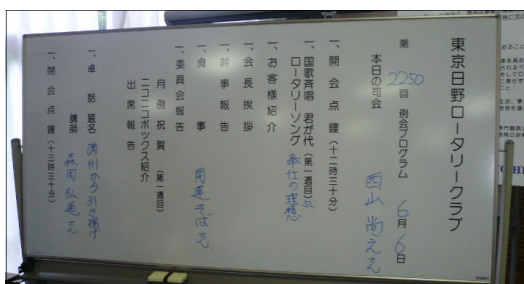 東京日野ロータリークラブ
第 2250 回 例会プログラム 6月6日
本日の司会 西山 尚え さん
一、開会点鐘(十二時三十分)
一、国歌斉唱 君が代(第一週目)
ロータリーソング 奉仕の理想
一、お客様紹介
一、会長挨拶
一、幹事報告
一、食事 開運そばさん
一、委員会報告
月例祝賀(第一週目)
ニコニコボックス紹介
出席報告
一、卓話 題名 満州から引き揚げ
講師 森岡 弘 さん
一、閉会点鐘(十三時三十分)